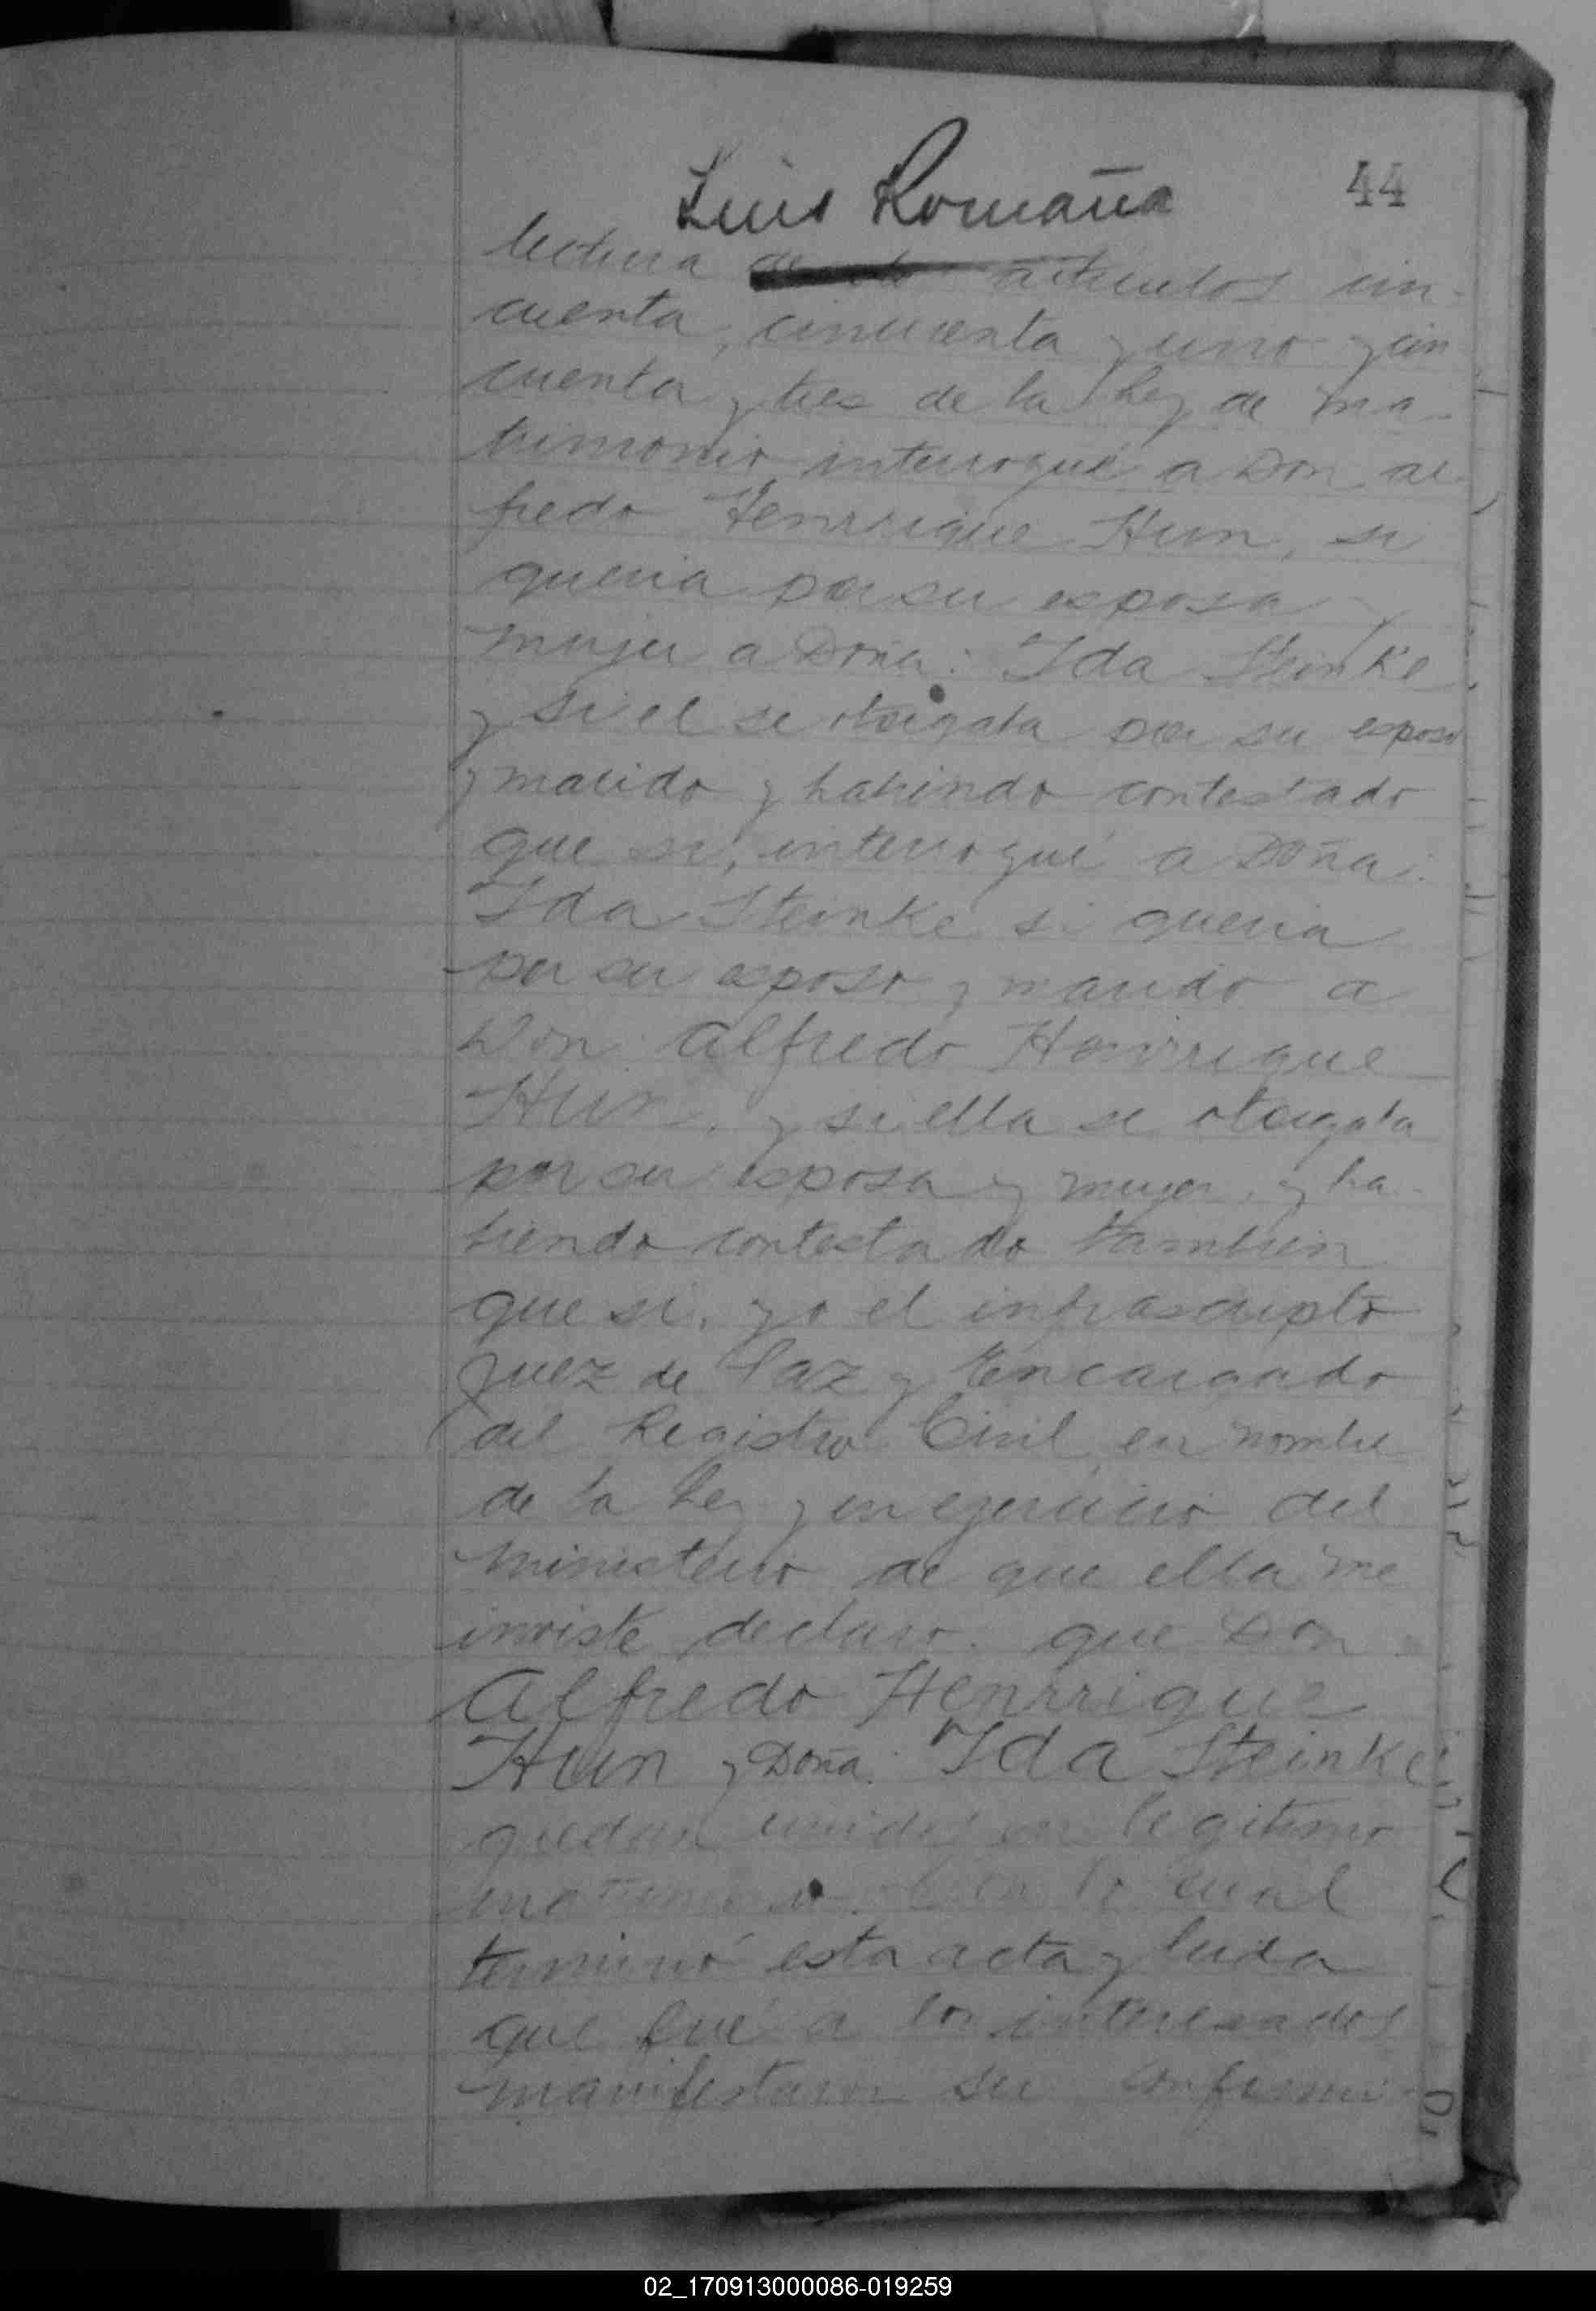 44
Luis Romaña
lectura de los artículos cin-
cuenta, cincuenta y uno y cin
cuenta y tres de la Ley de ma-
trimonio interrogué a Don Al
fredo Henrrique Hun, si
queria por su esposa y
mujer a Doña: Ida Steinke
y si el se otorgaba por su esposo
y marido y habindo contestado
que si, interrogué a Doña:
Ida Steinke si queria
por su esposo y marido a
Don Alfredo Henrrique
Hun, y si ella se otorgaba
por su esposa y mujer, y ha-
biendo contestado tambien
que si, yo el infrascripto
Juez de Paz y Encargado
del Registro Civil en nombre
de la Ley y en ejercicio del
ministerio de que ella me
inviste declaro que Don
Alfredo Henrrique
Hun y Doña: Ida Steinke
quedan unidos en legitimo
matrimonio. Con lo cual
terminó esta acta y leida
que fué a los interesados
manifestaron su conformi-
02_170913000086-019259